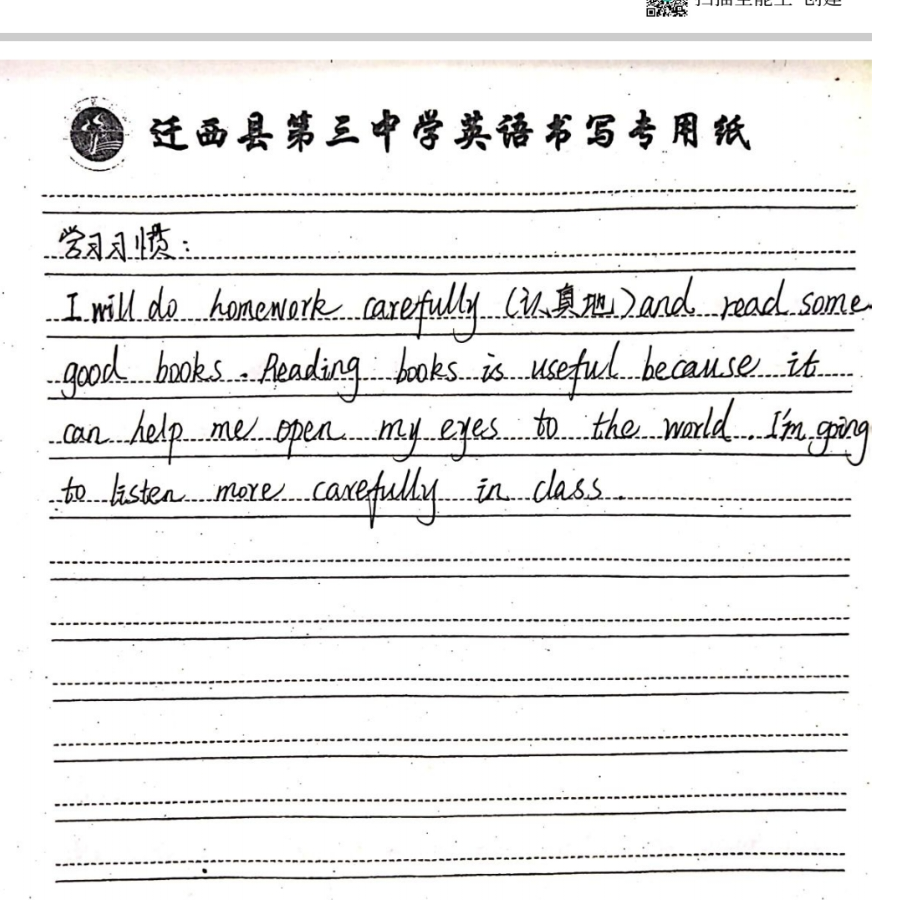 扫描全能王 创建
迁西县第三中学英语书写专用纸
学习习惯:
I will do homework carefully (认真地) and read some
good books. Reading books is useful because it
can help me open my eyes to the world. I'm going
to listen more carefully in class.